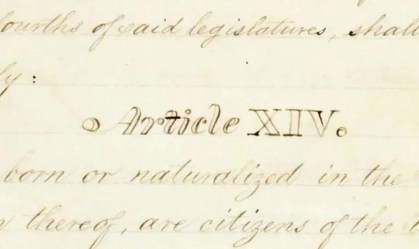 fourths of said legislatures, shall
ly:
Article XIV.
born or naturalized in the
thereof, are citizens of the